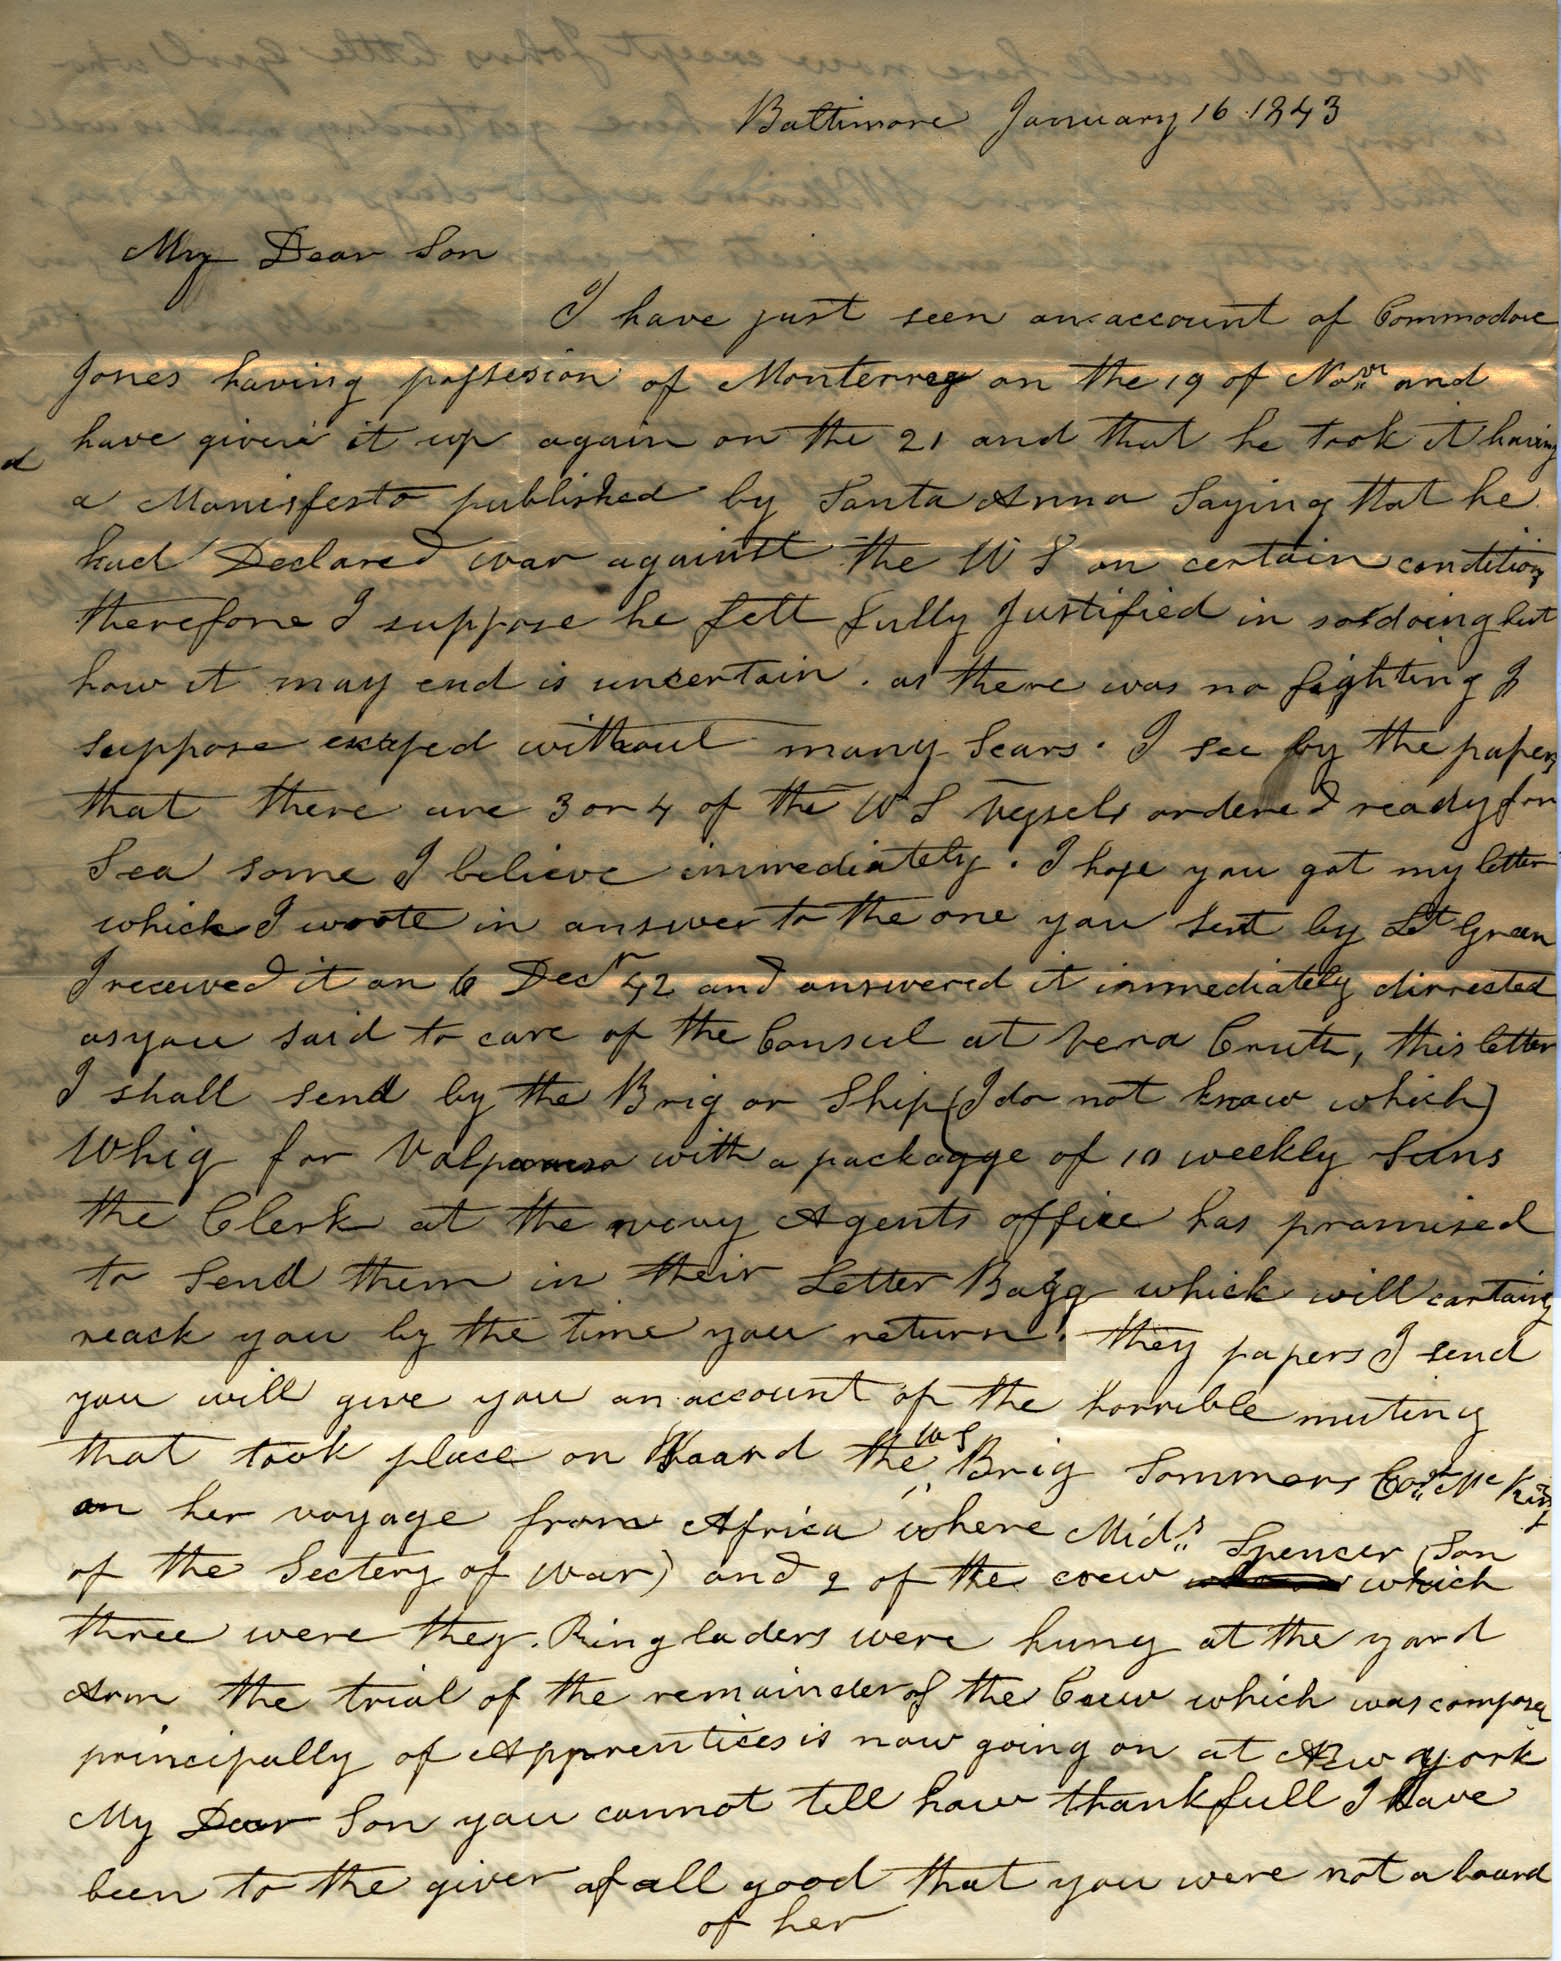 Baltimore January 16 1843
My Dear Son
I have just seen an account of Commodore
Jones having possesion of Monterrey on the 19 of Novr and
have given it up again on the 21 and that he took it having
d
a Manisfesto published by Santa Anna Saying that he
had Declared war against the U S on certain conditions
therefore I suppose he fell fully Justified in so doing but
how it may end is uncertain. as there was no fighting I
suppose escaped without many Scars. I see by the papers
that there are 3 or 4 of the U S Vessels ordered ready for
Sea some I believe immediately. I hope you got my letter
which I wrote in answer to the one you sent by Lt Green
I received it on 6 Decr 42 and answered it immediately dirrested
as you said to care of the Consul at Vera Cruth, this letter
I shall send by the Brig or Ship (I do not know which)
Whig for with a packagge of 10 weekly Suns
the Clerk at the navy Agents office has promised
to Send them in their Letter Bagg which will certainy
reack you by the time you return. they papers I send
you will give you an account of the horrible mutiny
that took place on Board the US Brig Sommers
on her voyage from Africa where Mids Spencer (Son
of the Sectery of War) and 2 of the crew which
three were they. Ringladers were hung at the yard
Arm the trial of the remainder of the Crew which was composed
principally of Apprentices is now going on at New York
My Dear Son you cannot tell how thankfull I have
been to the giver of all good that you were not a board
of her